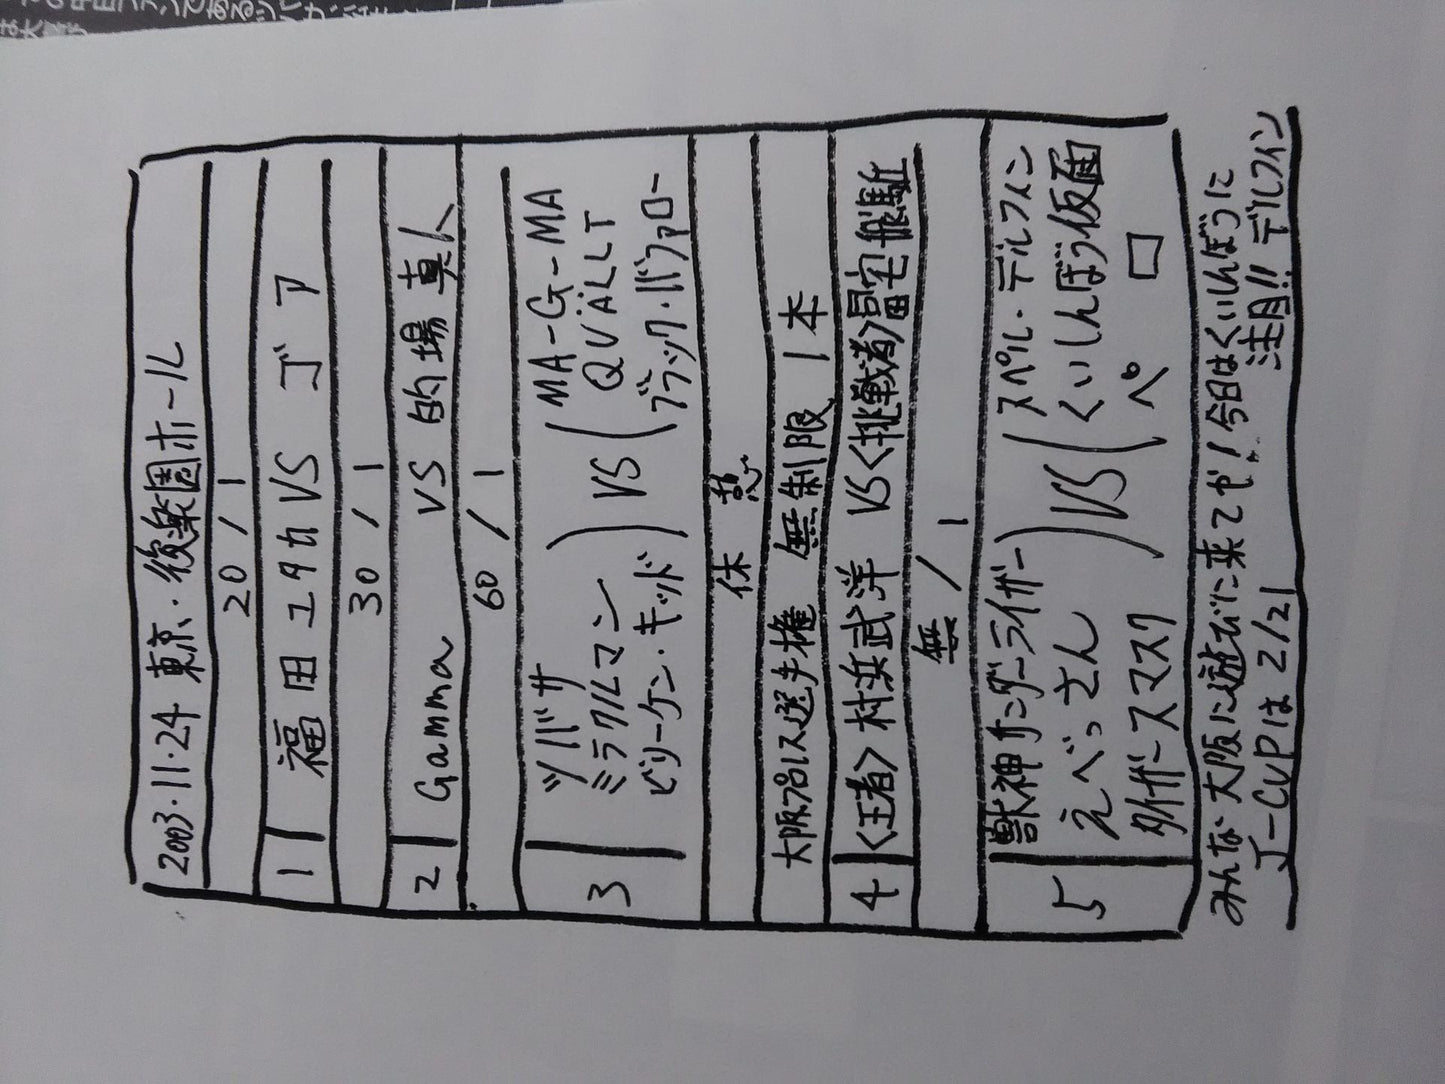 2003・11・24 東京・後楽園ホール
20 / 1
1 福田ユタカ VS ゴア
30 / 1
2 Gamma VS 的場真人
60 / 1
ツバサ MA-G-MA
3 ミラクルマン VS QUALLT
ビリーケン・キッド ブラック・バファロー
休憩
大阪プロレス選手権 無制限 1本
4 <王者> 村浜武洋 VS <挑戦者> 冨宅飛駈
無 / 1
獣神サンダーライガー スペル・デルフィン
5 えべっさん VS くいしんぼう仮面
タイガースマスク ペ ロ
みんな大阪に遊びに来てや!今日はくいしんぼうに
J-CUPは 2/21 注目!! デルフィン